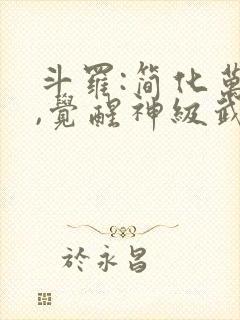 斗羅:簡化萬
,覺醒神級武
於永昌